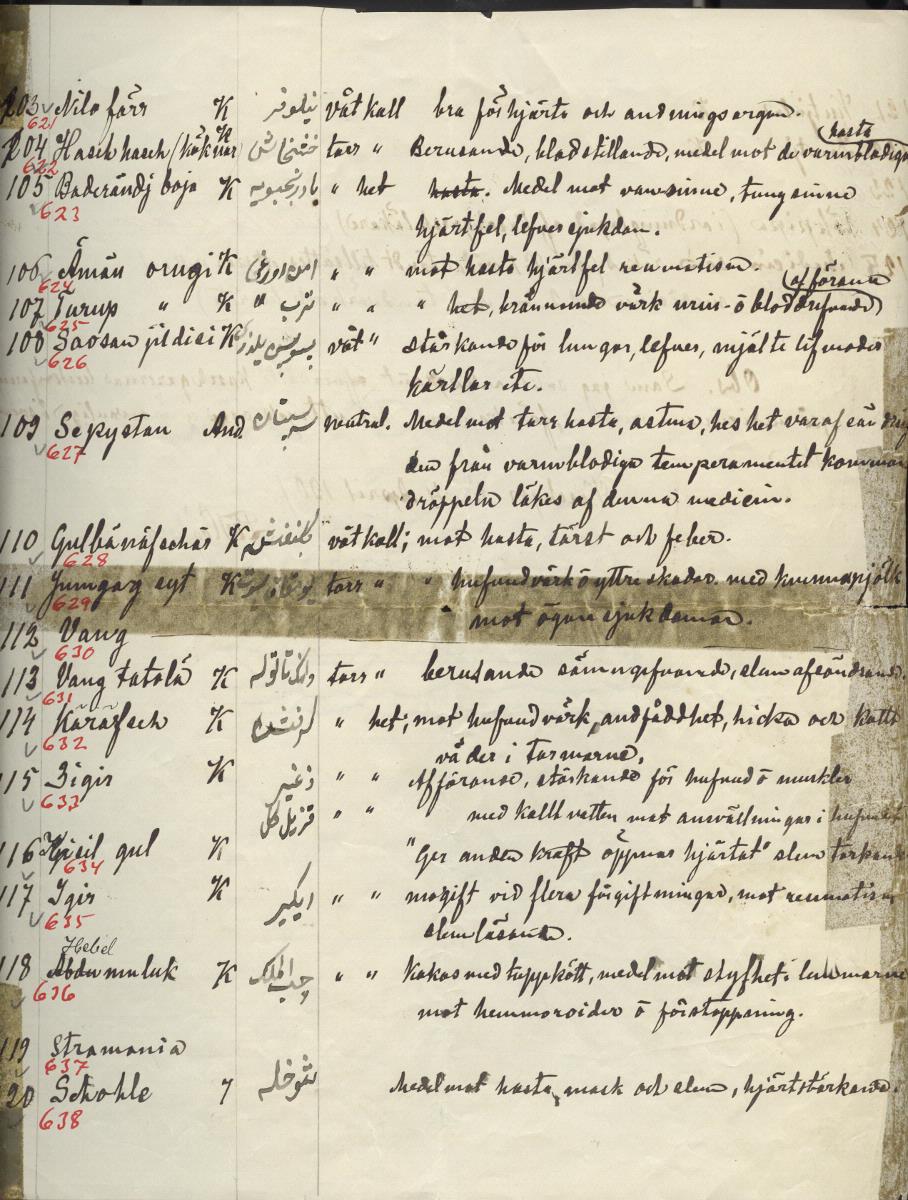 103 Nilofärr K نيلوفر våt kall bra för hjärta och andningsorgan.
621
104 Haschhasch (köknar) K خشخاش torr " Berusande, blodstillande, medel mot de varmblodigas hosta
622
105 Baderändj boja K بادرنجبويه " het hosta. Medel mot vansinne, tungsinne
623
hjärtfel, lefversjukdom.
106 Ämän orugi K " " mot hosta hjärtfel reumatism.
624
107 Turup " K " ترب " " " het, brännande värk urin- o blod afförande
625
108 Saosan jildisi K våt " stärkande för lungor, lefver, mjälte lifmoder
626
körtlar etc.
109 Sepystan And. سپستان neutral. Medel mot torrhosta, astma, heshet
627
den från varmblodiga temperamentet kommande
dröppeln läkes af denna medicin.
110 Gulbänäfschäs K våt kall; mot hosta, törst och feber.
628
111 Jumgaq syt K torr " " hufvudvärk o yttre skador. med kvinnomjölk
629
mot ögonsjukdomar.
112 Vang
630
113 Vang tatolä K torr " berusande sömngifvande, slemafsöndrande.
631
114 Käräfsch K " het; mot hufvudvärk, andfåddhet, hicka och kallt
632
väder i tarmarne.
115 Zigir K زغير " " Afförande, stärkande för hufvud o muskler
633
قزيل گل " " med kallt vatten mot ansvällningar i hufvudet
116 Kizil gul K "Ger anden kraft öppnar hjärtat" slem torkande
634
117 Igir K ايگير " " motgift vid flera förgiftningar, mot reumatism
635
slemlösande.
Hebel
118 Abdu muluk K حب الملك " " Kokas med tuppkött, medel mot styfhet i lemmarne
636
mot hemmoroider o förstoppning.
119 Stramonia
637
20 Schohle 7 شوخله Medel mot hosta, mask och slem, hjärtstärkande.
638